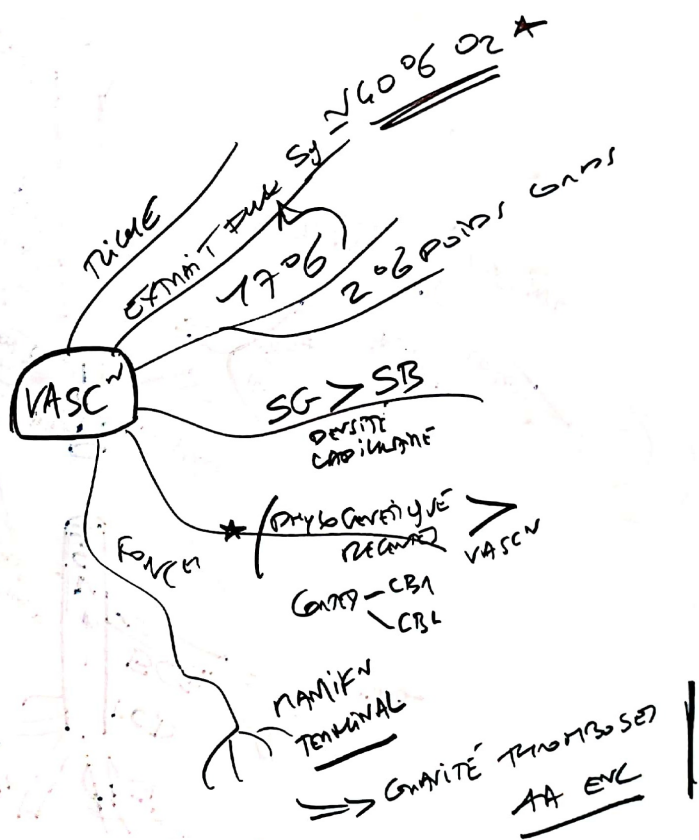 RICHE
EXTRAIT PLUS Sg ~40% O2
17%
2% POIDS CORPS
VASCⁿ
SG > SB
DENSITÉ
CAPILLAIRE
PHYLOGENETIQUE
RECENTES
> VASCN
CORTEX CB1
CBL
FONCER
RAMIFN
TERMINAL
=> GRAVITÉ THROMBOSES
AA ENC